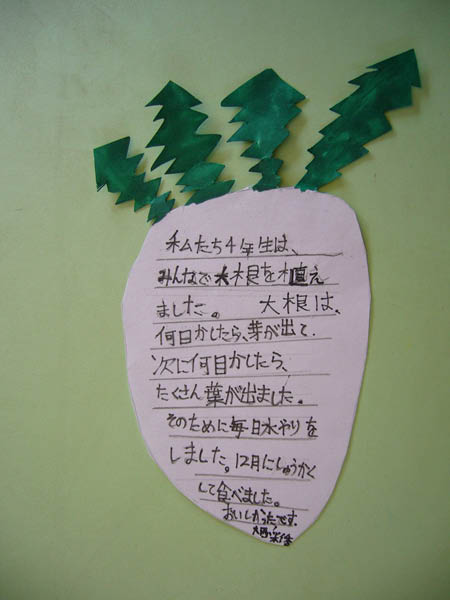 私たち4年生は、
みんなで大根を植え
ました。 大根は、
何日かしたら、芽が出て、
次に何日かしたら、
たくさん葉が出ました。
そのために毎日水やりを
しました。12月にしゅうかく
して食べました。
おいしかったです。